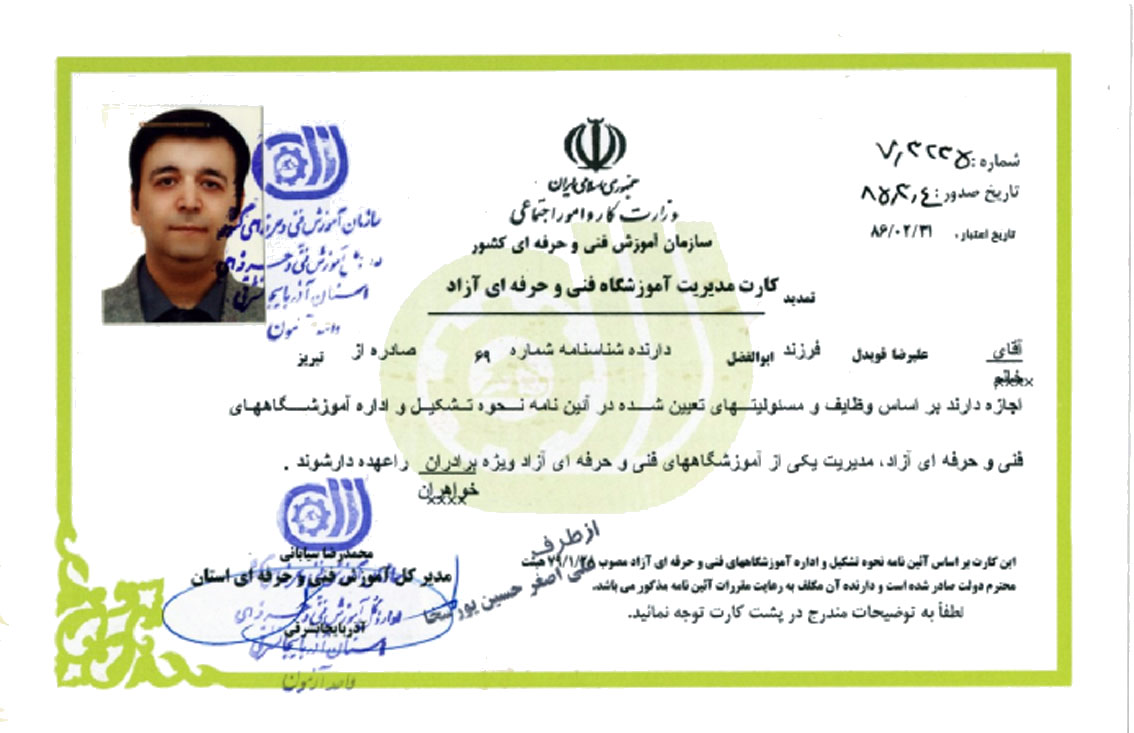 شماره: ۷,۳۲۲۵
تاریخ صدور: ۸۵,۳,۴
تاریخ اعتبار، ۸۶/۰۲/۳۱
جمهوری اسلامی ایران
وزارت کار و امور اجتماعی
سازمان آموزش فنی و حرفه ای کشور
تمدید کارت مدیریت آموزشگاه فنی و حرفه ای آزاد
سازمان آموزش فنی و حرفه ای کشور
آموزش فنی و حرفه ای
استان آذربایجانشرقی
واحد آزمون
آقای علیرضا قویدل فرزند ابوالفضل دارنده شناسنامه شماره ۶۹ صادره از تبریز
خانم
xxxx
اجازه دارند بر اساس وظایف و مسئولیتهای تعیین شده در آئین نامه نحوه تشکیل و اداره آموزشگاههای
فنی و حرفه ای آزاد، مدیریت یکی از آموزشگاههای فنی و حرفه ای آزاد ویژه برادران راعهده دارشوند .
خواهران
xxxx
این کارت بر اساس آئین نامه نحوه تشکیل و اداره آموزشگاههای فنی و حرفه ای آزاد مصوب ۷۹/۱/۲۸ هیئت
محترم دولت صادر شده است و دارنده آن مکلف به رعایت مقررات آئین نامه مذکور می باشد.
لطفاً به توضیحات مندرج در پشت کارت توجه نمائید.
از طرف
علی اصغر حسین پور سخا
محمدرضا سیابانی
مدیر کل آموزش فنی و حرفه ای استان
آذربایجانشرقی
اداره کل آموزش فنی و حرفه ای
استان آذربایجانشرقی
واحد آزمون